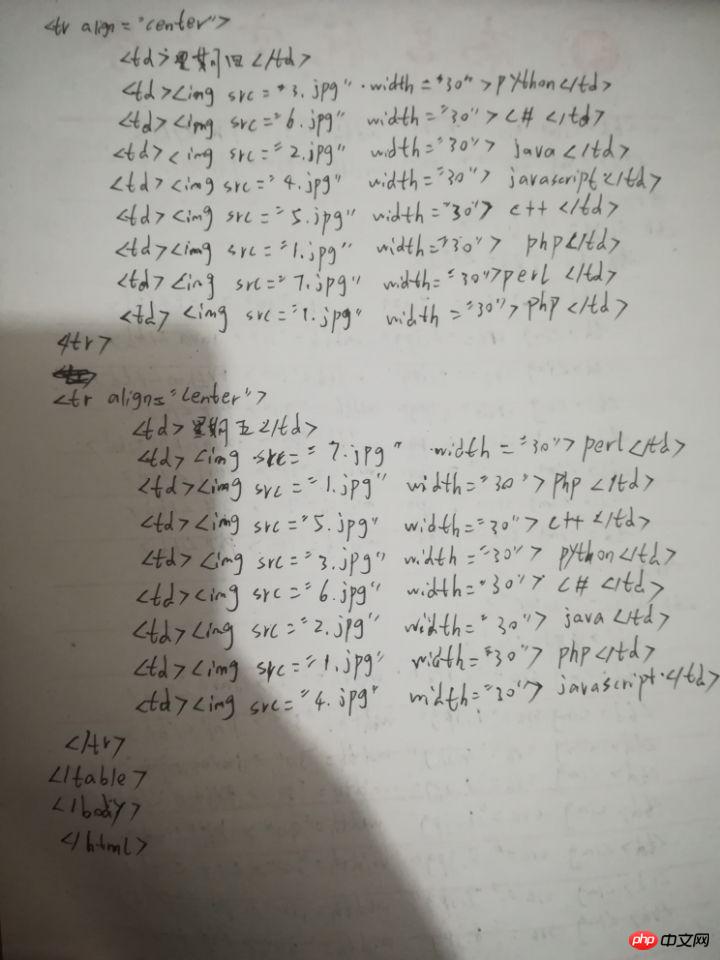 <tr align="center">
<td>星期四</td>
<td><img src="3.jpg" width="30">python</td>
<td><img src="6.jpg" width="30">C#</td>
<td><img src="2.jpg" width="30">java</td>
<td><img src="4.jpg" width="30">javascript</td>
<td><img src="5.jpg" width="30">c++</td>
<td><img src="1.jpg" width="30">php</td>
<td><img src="7.jpg" width="30">perl</td>
<td><img src="1.jpg" width="30">php</td>
</tr>
<tr align="center">
<td>星期五</td>
<td><img src="7.jpg" width="30">perl</td>
<td><img src="1.jpg" width="30">php</td>
<td><img src="5.jpg" width="30">c++</td>
<td><img src="3.jpg" width="30">python</td>
<td><img src="6.jpg" width="30">C#</td>
<td><img src="2.jpg" width="30">java</td>
<td><img src="1.jpg" width="30">php</td>
<td><img src="4.jpg" width="30">javascript</td>
</tr>
</table>
</body>
</html>
php 中文网